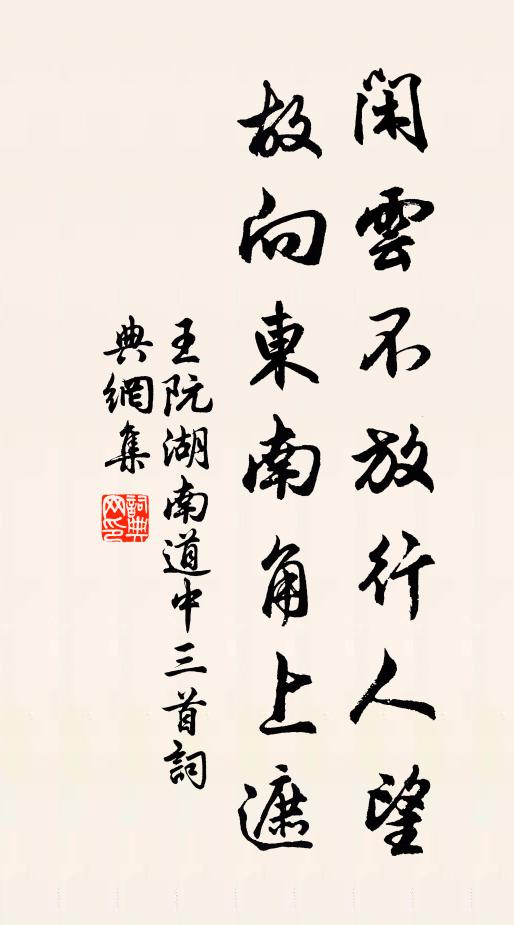 閑雲不放行人望
故向東南角上遮
王阮湖南道中三首詞
典網集
詞典网印